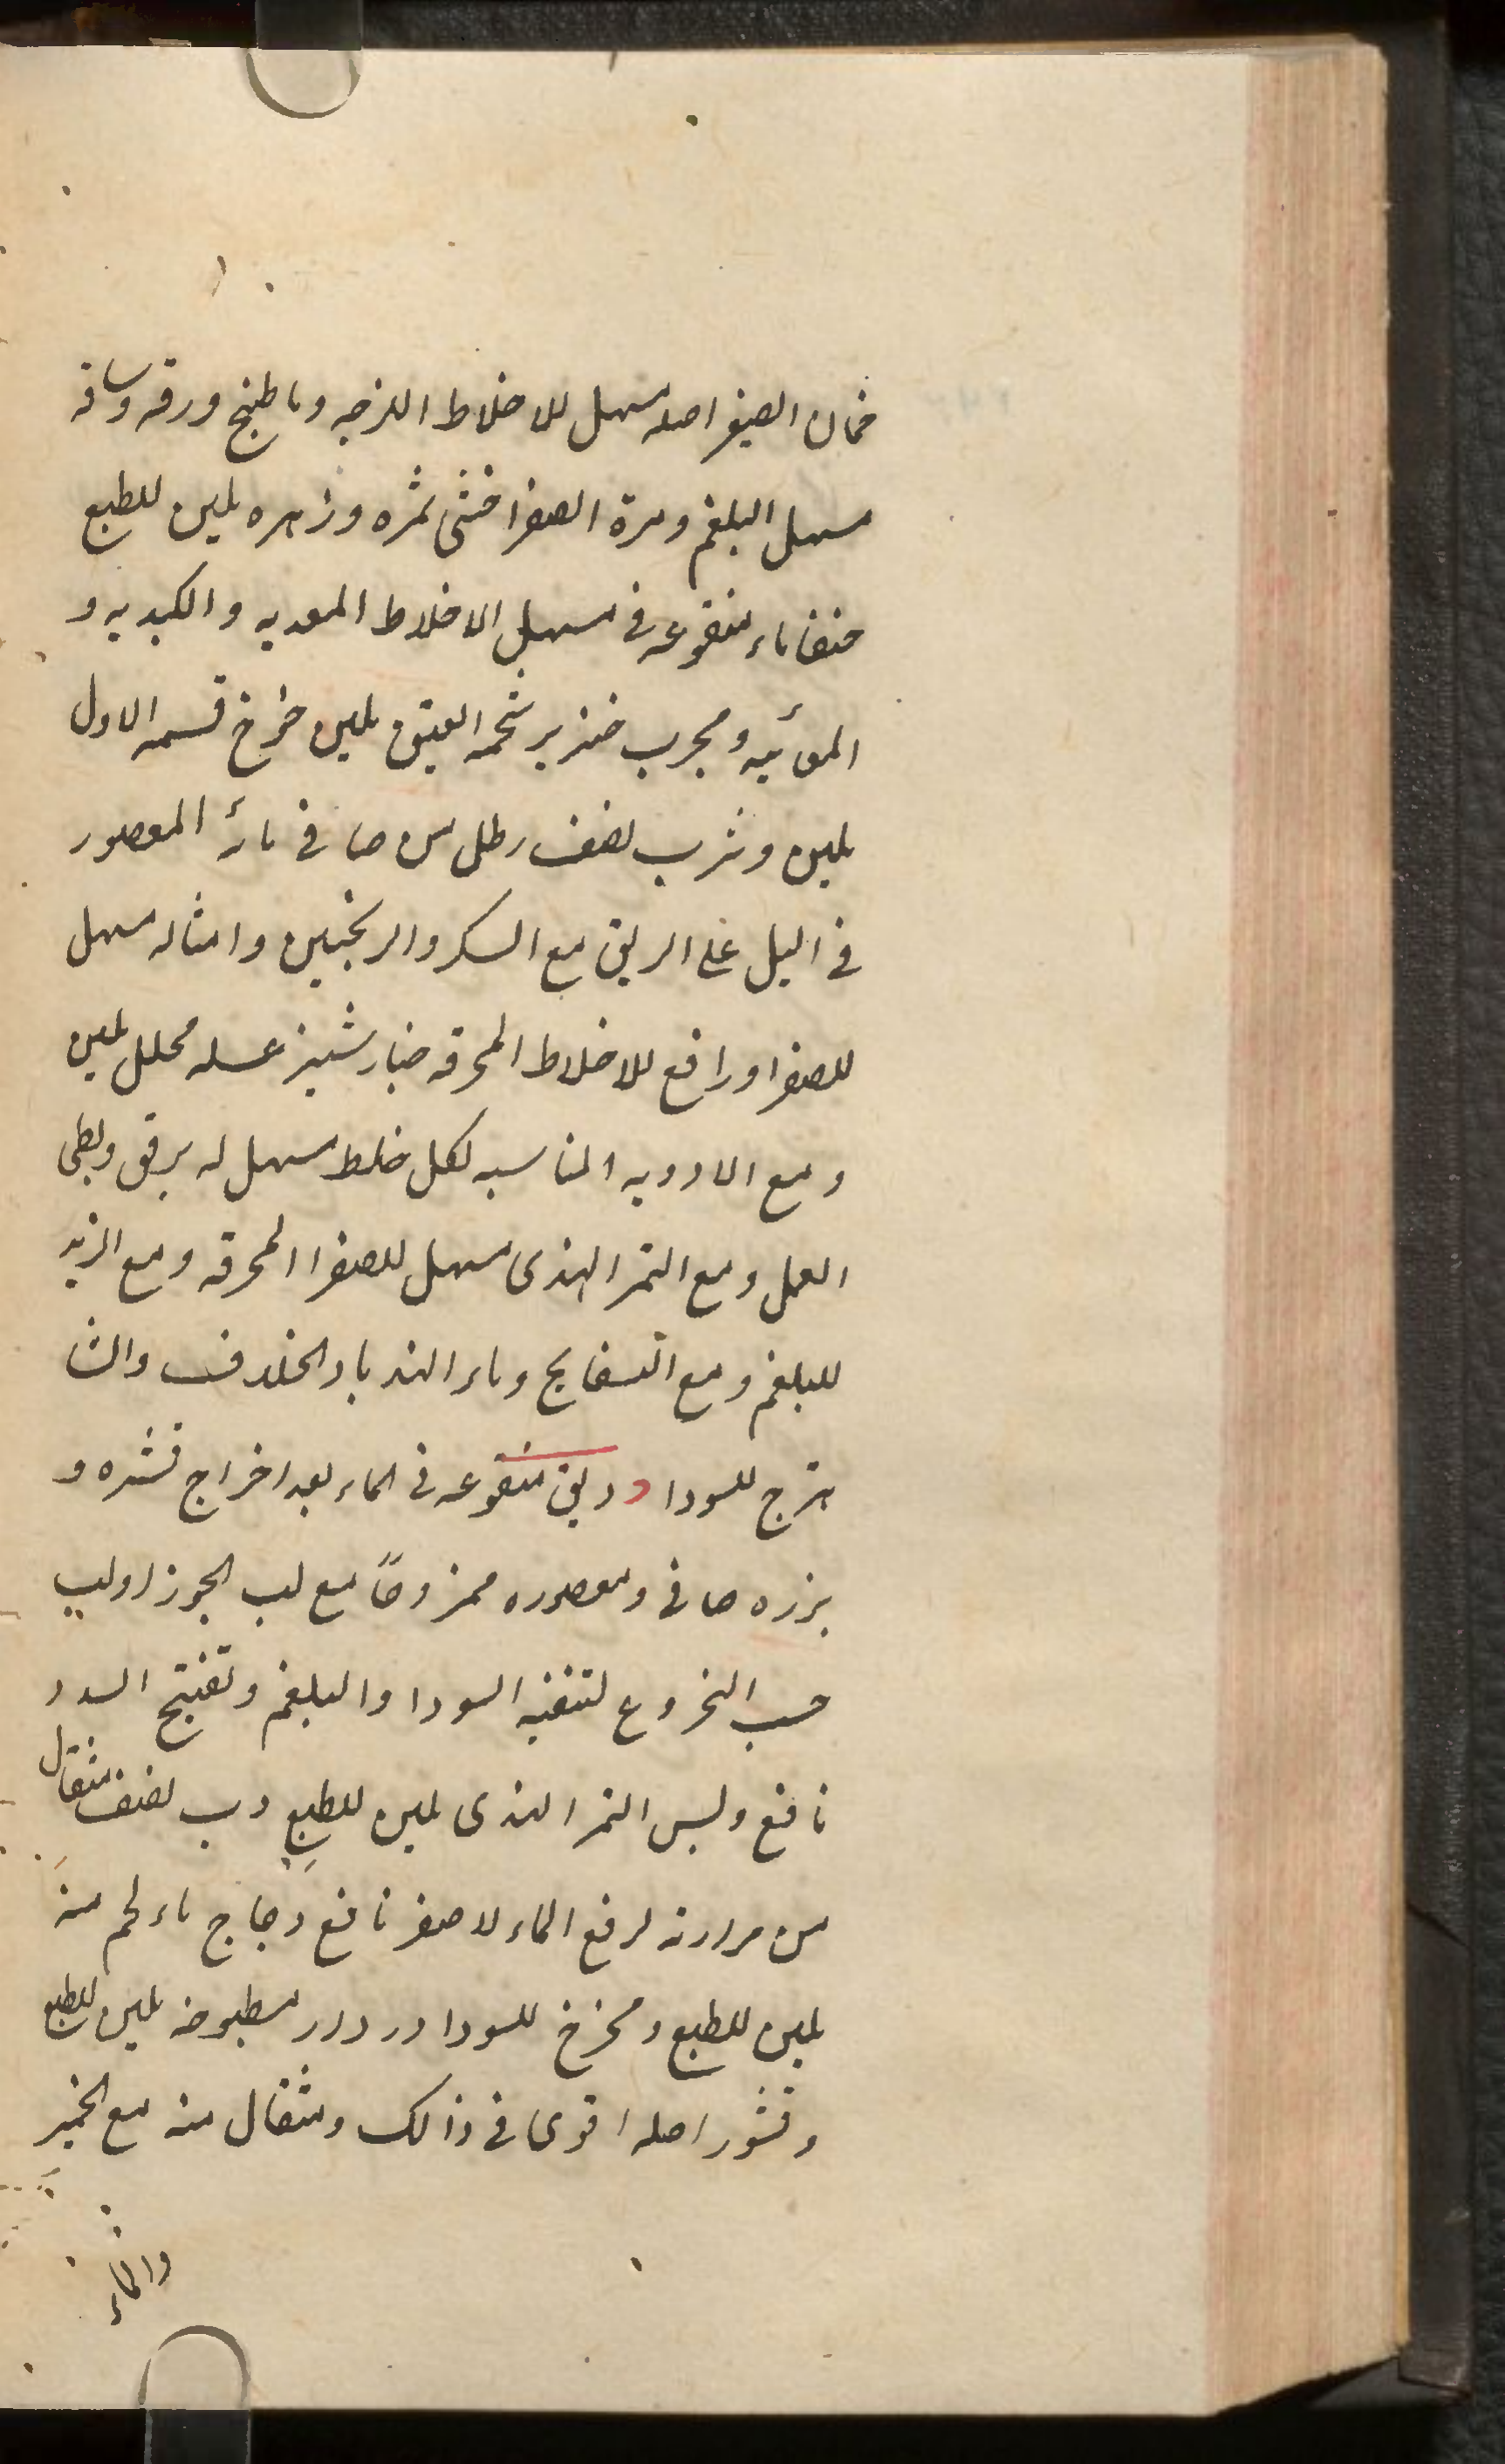 خمان الصغير اصله مسهل للاخلاط اللزجه وما طبخ ورقه وساقه
مسهل البلغم ومرة الصفرا خنثى ثمره وزهره ملين للطبع
ماء منقوعه فى مسهل الاخلاط المعديه والكبديه و
المعائيه ومجرب خنزير شحمه العتيق ملين خوخ قسمه الاول
ملين وشرب نصف رطل من صافى مائه المعصور
فى اليل على الريق مع السكر والترنجبين وامثاله مسهل
للصفرا ورافع للاخلاط المحرقه خيارشنبر عسله محلل ملين
ومع الادويه المناسبه لكل خلط مسهل له برفق وبطى
العمل ومع التمر الهندى مسهل للصفرا المحرقه ومع التربد
للبلغم ومع البسفايج وماء الهندبا والشا
هترج للسودا دبق منقوعه فى الماء بعد اخراج قشره و
بزره صافى ومعصوره ممزوجاً مع لب الجوز او لب
حب الخروع لتنقيه السودا والبلغم وتفتيح السدد
نافع ودبس التمر الهندى ملين للطبع دب نصف مثقال
من مرارته لرفع الماء الاصفر نافع دجاج ماء لحم منه
ملين للطبع ومخرج للسودا دردار مطبوخه ملين للطبع
وقشور اصله اقوى فى ذالك ومثقال منه مع الخمير
والماء